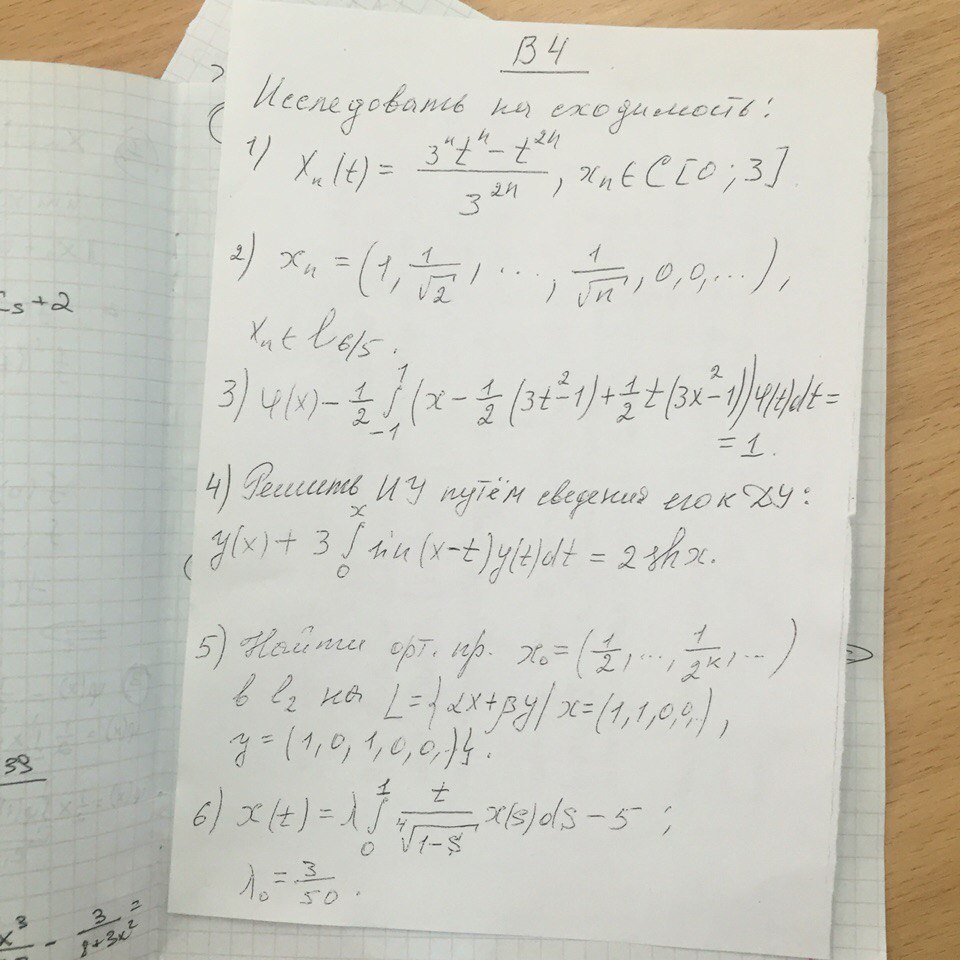 В 4
Исследовать на сходимость:
1) Xₙ(t) = (3ⁿtⁿ – t²ⁿ)/3²ⁿ, xₙ ∈ C [0 ; 3]
2) xₙ = (1, 1/√2, ..., 1/√n, 0, 0, ...),
xₙ ∈ l₆/₅.
3) φ(x) – 1/2 ∫₋₁¹ (x – 1/2 (3t² – 1) + 1/2 t (3x² – 1)) φ(t)dt =
= 1.
4) Решить ИУ путём сведения его к ДУ:
y(x) + 3 ∫₀ˣ sin (x–t) y(t)dt = 2 sh x.
5) Найти орт. пр. x₀ = (1/2, ..., 1/2ᵏ, ...)
в l₂ на L = {αx + βy | x = (1, 1, 0, 0, .),
y = (1, 0, 1, 0, 0, .)}.
6) x(t) = λ ∫₀¹ t/⁴√(1–s) x(s)ds – 5 ;
λ₀ = 3/50 .
Cs + 2
39
x³
– 3/(8+3x²) =